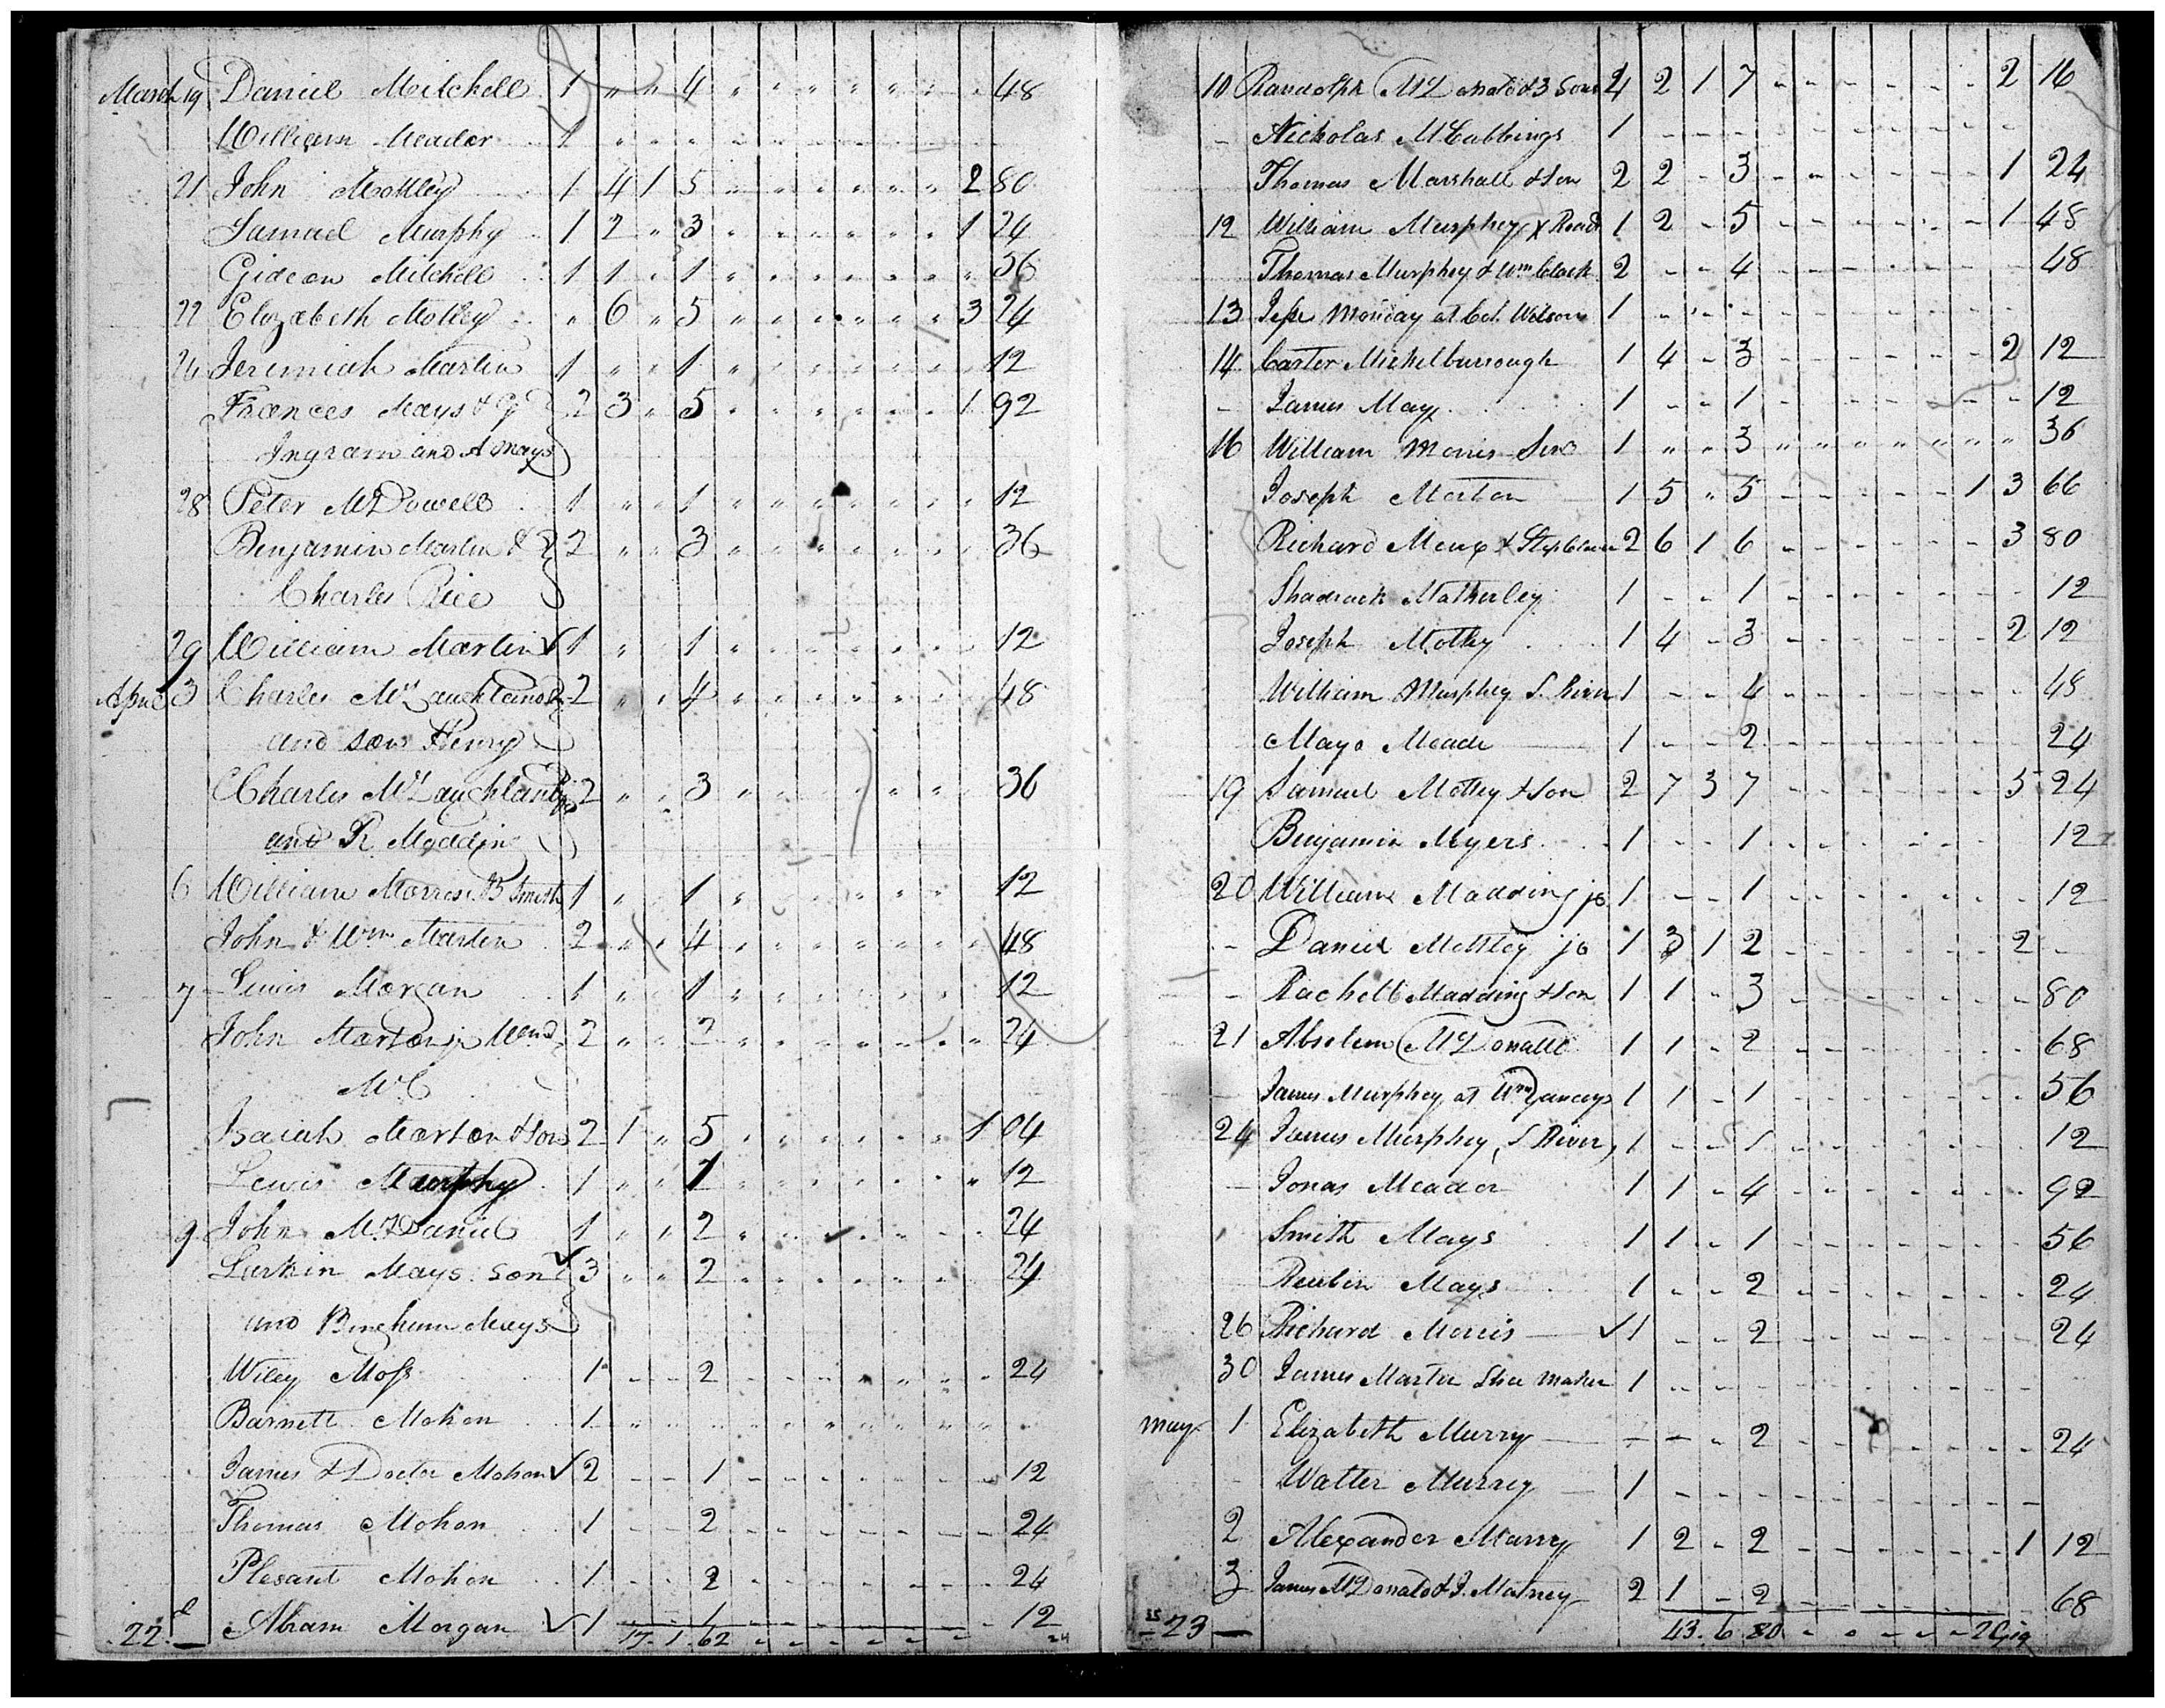 March 19 Daniel Mitchell 1 " " 4 " " " " " " " 48
William Meador 1 " " " " " " " " "
21 John Mottley 1 4 1 5 " " " " " " 2 80
Samuel Murphy 1 2 " 3 " " " " " " 1 24
Gideon Mitchell 1 1 " 1 " " " " " " " 56
22 Elizabeth Motley " 6 " 5 " " " " " " 3 24
24 Jeremiah Martin 1 " " 1 " " " " " " " 12
Frances Mays & G 2 3 " 5 " " " " " " 1 92
Ingram and A Mays
28 Peter McDowell 1 " " 1 " " " " " " " 12
Benjamin Martin & 2 " " 3 " " " " " " " 36
Charles Rice
29 William Martin √ 1 " " 1 " " " " " " " 12
April 3 Charles McLaughland 2 " " 4 " " " " " " " 48
and son Henry
Charles McLaughland 2 " " 3 " " " " " " " 36
and R Maddin
6 William Morris B Smith 1 " " 1 " " " " " " 12
John & Wm Martin 2 " " 4 " " " " " " " 48
7 Lewis Morgan 1 " " 1 " " " " " " " 12
John Marton jr Wend 2 " " 2 " " " " " " " 24
McC
Isaiah Marton & Son 2 1 " 5 " " " " " " 1 04
Lewis Murphy 1 " " 1 " " " " " " " 12
9 John McDaniel 1 " " 2 " " " " " " " 24
Larkin Mays son √ 3 " " 2 " " " " " " 24
and Bingham Mays
Wiley Moss 1 - - 2 - - - - - - - 24
Barnett Mohon 1 " " " " " " " " " "
James & Doctor Mohon √ 2 - - 1 - - - - - - - 12
Thomas Mohon 1 - - 2 - - - - - - - 24
Plesant Mohon 1 - - 2 - - - - - - - 24
Abram Morgan √ 1 - - 1 - - - - - - - 12
22d 17 . 1 . 62 - - - - - - 24
10 Randolph McDonald & 3 Sons 4 2 1 7 - - - - - - 2 16
- Nicholas McCubbings 1 - - - - - - - - - -
Thomas Marshall & Son 2 2 - 3 - - - - - - 1 24
12 William Murphey X Road 1 2 - 5 - - - - - - 1 48
Thomas Murphey & Wm Clark 2 - - 4 - - - - - - - 48
13 Jesse Monday at Col. Wilsons 1 - - - - - - - - - -
14 Carter Michelburrough 1 4 - 3 - - - - - - 2 12
- James May 1 - - 1 - - - - - - - 12
16 William Morris Senr 1 " " 3 " " " " " " " 36
Joseph Morton 1 5 " 5 - - - - - 1 3 66
Richard Meux & Step Coleman 2 6 1 6 - - - - - - 3 80
Shadrack Matherley 1 - - 1 - - - - - - - 12
Joseph Motley 1 4 - 3 - - - - - - 2 12
William Murphey S. River 1 - - 4 - - - - - - - 48
Mayo Meade 1 - - 2 - - - - - - - 24
19 Samuel Motley & Son 2 7 3 7 - - - - - - 5 24
Benjamin Myers 1 - - 1 - - - - - - 12
20 William Madding jr 1 - - 1 - - - - - - - 12
- Daniel Mottley jr 1 3 1 2 - - - - - - 2 -
- Rachell Madding & Son 1 1 - 3 - - - - - - - 80
21 Absolem McDonald 1 1 - 2 - - - - - - - 68
- James Murphey at Wm Yanceys 1 1 - 1 - - - - - - - 56
24 James Murphey, S River, 1 - - 1 - - - - - - - 12
- Jonas Meador 1 1 - 4 - - - - - - - 92
Smith Mays 1 1 - 1 - - - - - - - 56
Reubin Mays 1 - - 2 - - - - - - - 24
26 Richard Morris √ 1 - - 2 - - - - - - - 24
30 James Martin Shoe maker 1 - - - - - - - - - -
May 1 Elizabeth Murry - - - 2 - - - - - - - 24
- Walter Murrey 1 - - - - - - - - - -
2 Alexander Murry 1 2 - 2 - - - - - - 1 12
3 James McDonald & J. Matney 2 1 - 2 - - - - - - - 68
23 43 . 6 . 80 - - - - -